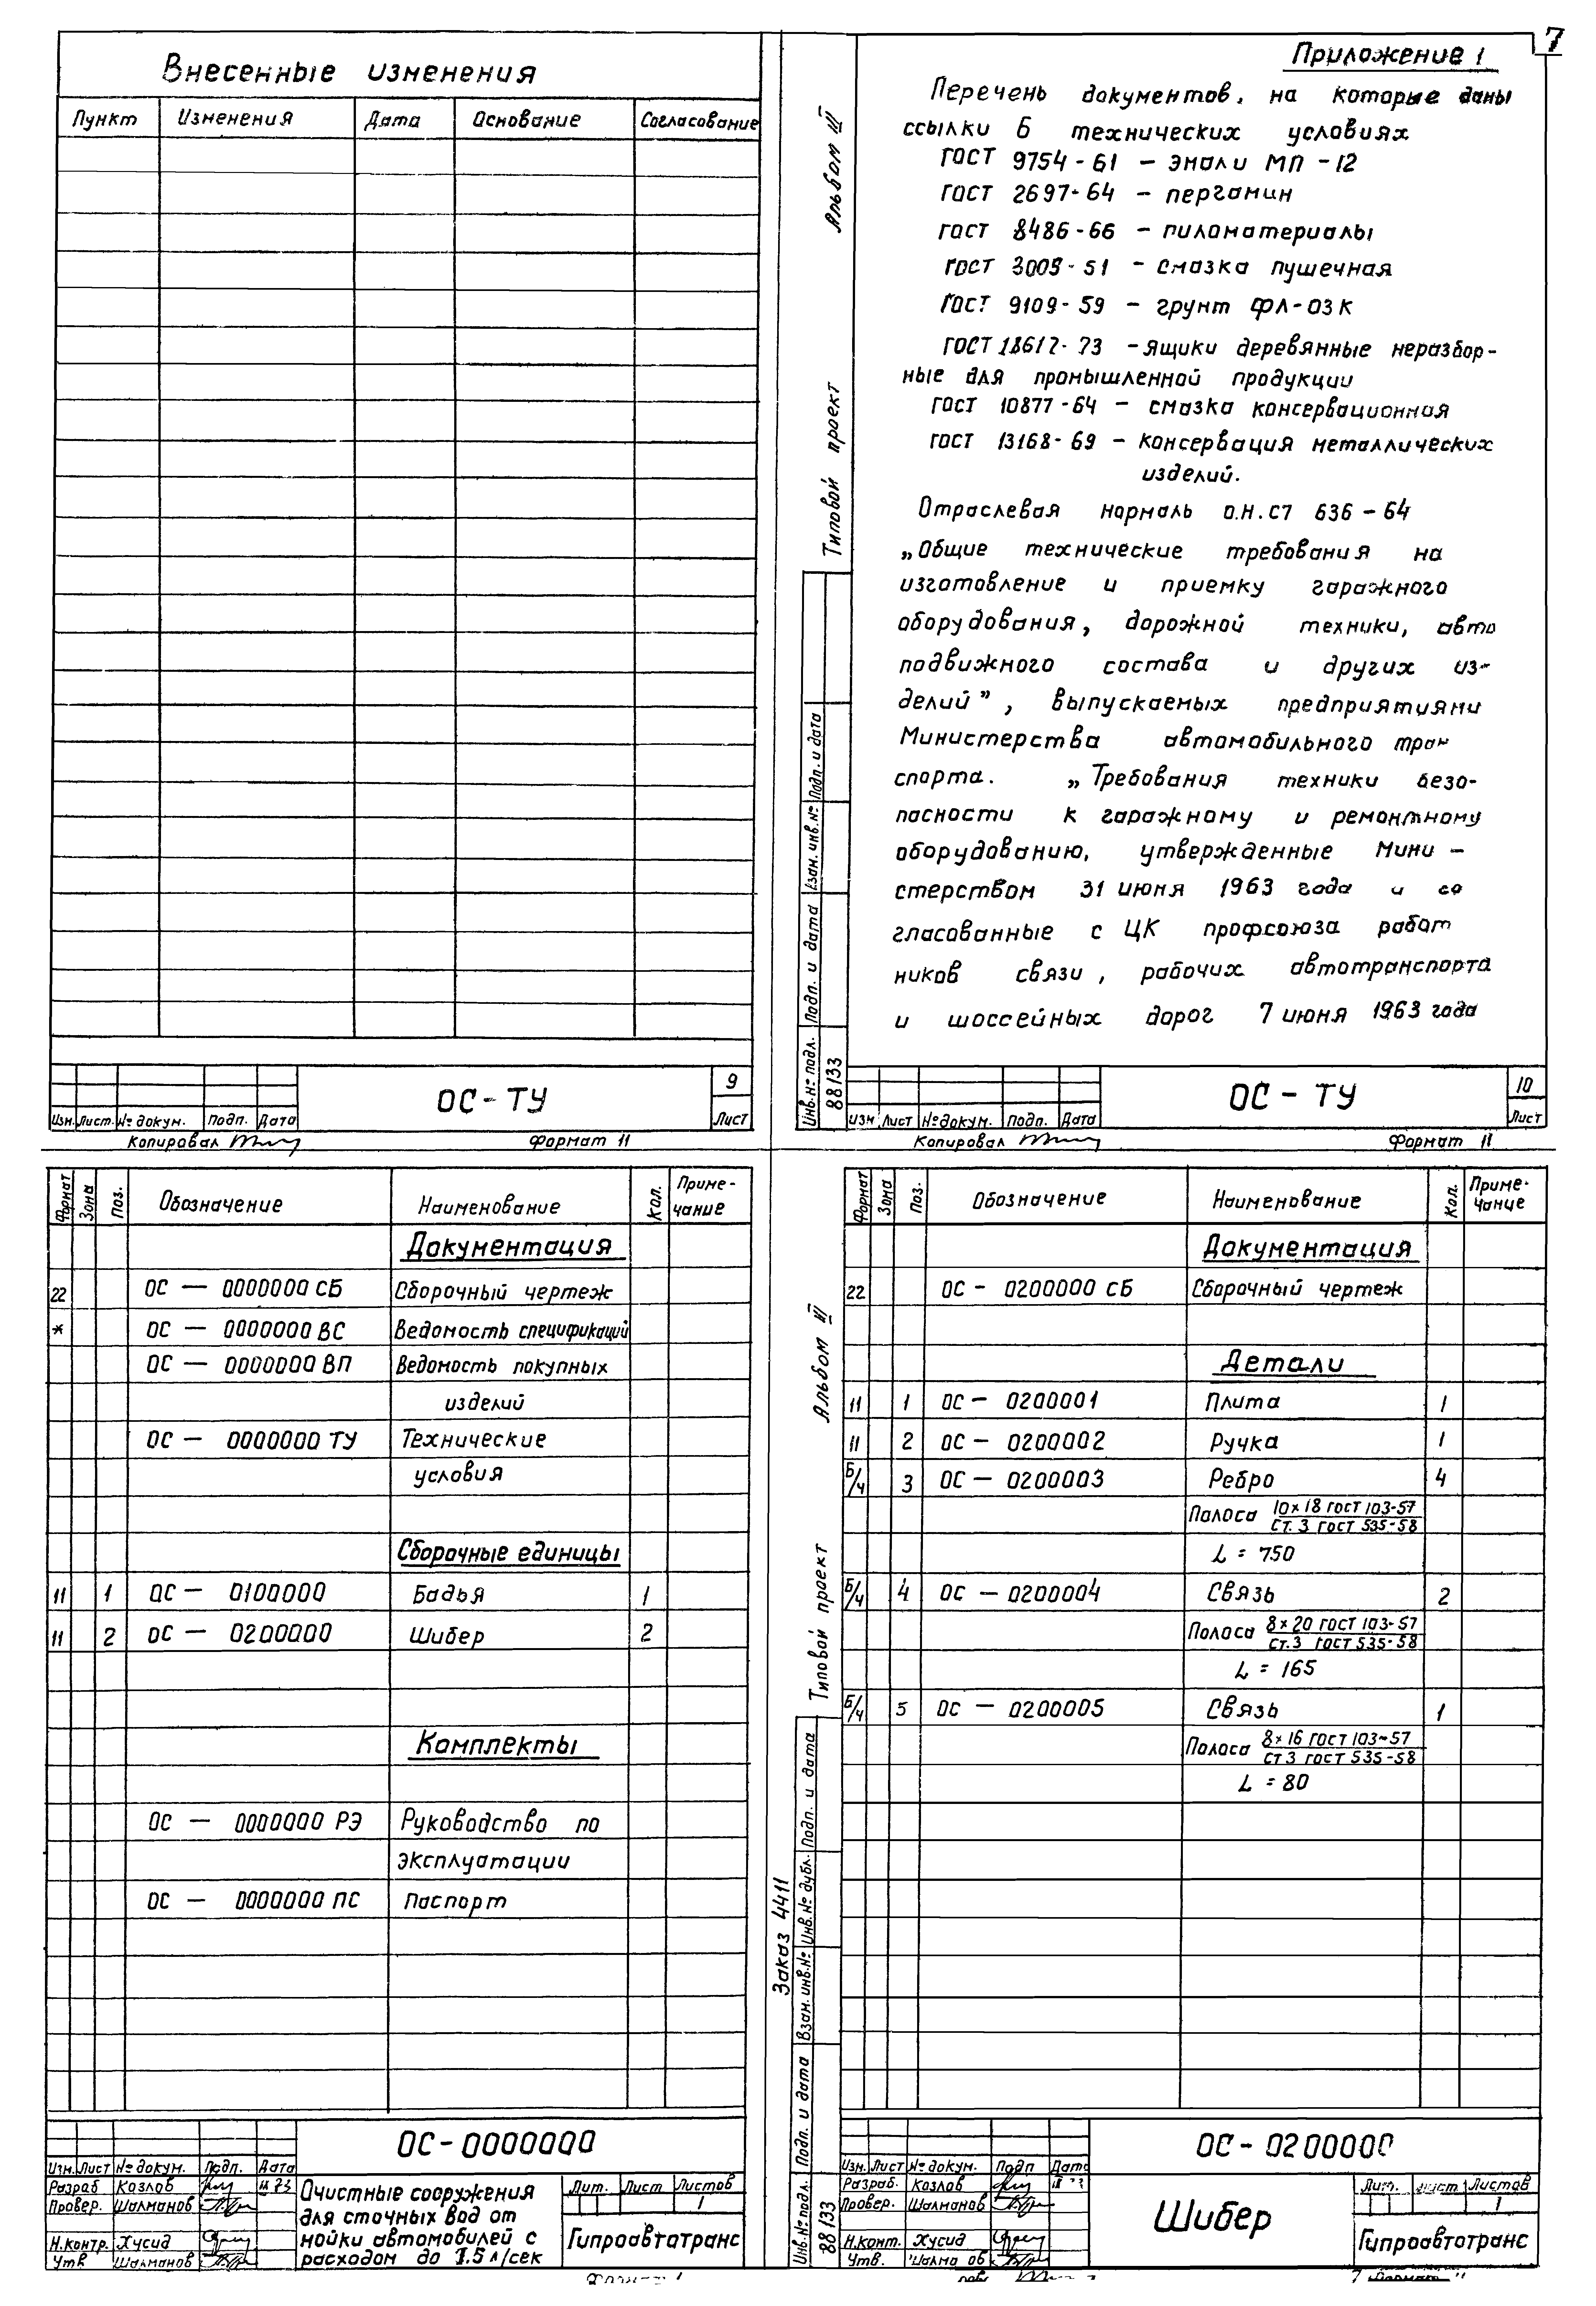 7
Внесенные изменения
Пункт Изменения Дата Основание Согласование
9
ОС-ТУ
Изм. Лист № докум. Подп. Дата Лист
Копировал Формат 11
Альбом III
Типовой проект
Приложение 1
Перечень документов, на которые даны
ссылки в технических условиях
ГОСТ 9754-61 – эмали МП-12
ГОСТ 2697-64 – пергамин
ГОСТ 8486-66 – пиломатериалы
ГОСТ 3005-51 – смазка пушечная
ГОСТ 9109-59 – грунт ФЛ-03К
ГОСТ 18617-73 – Ящики деревянные неразбор-
ные для промышленной продукции
ГОСТ 10877-64 – смазка консервационная
ГОСТ 13168-69 – консервация металлических
изделий.
Отраслевая нормаль о.н.ст 636-64
„Общие технические требования на
изготовление и приемку гаражного
оборудования, дорожной техники, авто
подвижного состава и других из-
делий", выпускаемых предприятиями
Министерства автомобильного тран
спорта. „Требования техники безо-
пасности к гаражному и ремонтному
оборудованию, утвержденные Мини-
стерством 31 июня 1963 года и со
гласованные с ЦК профсоюза работ
ников связи, рабочих автотранспорта
и шоссейных дорог 7 июня 1963 года
Инв.№ подл. Подп. и дата Взам. инв.№ Подп. и дата
88133
10
ОС-ТУ
Изм Лист № докум. Подп. Дата Лист
Копировал Формат 11
Формат Зона Поз. Обозначение Наименование Кол. Приме-
чание
Документация
22 ОС – 0000000 СБ Сборочный чертеж
* ОС – 0000000 ВС Ведомость спецификаций
ОС – 0000000 ВП Ведомость покупных
изделий
ОС – 0000000 ТУ Технические
условия
Сборочные единицы
11 1 ОС – 0100000 Бадья 1
11 2 ОС – 0200000 Шибер 2
Комплекты
ОС – 0000000 РЭ Руководство по
эксплуатации
ОС – 0000000 ПС Паспорт
ОС-0000000
Изм. Лист № докум. Подп. Дата
Разраб Козлов III 73
Провер. Шалманов
Н.контр. Хусид
Утв Шалманов
Очистные сооружения
для сточных вод от
мойки автомобилей с
расходом до 7.5 л/сек
Лит. Лист Листов
1
Гипроавтотранс
Альбом III
Типовой проект
Заказ 4411
Формат Зона Поз. Обозначение Наименование Кол. Приме-
чание
Документация
22 ОС - 0200000 СБ Сборочный чертеж
Детали
11 1 ОС – 0200001 Плита 1
11 2 ОС – 0200002 Ручка 1
Б/ч 3 ОС – 0200003 Ребро 4
Полоса 10×18 ГОСТ 103-57
Ст. 3 ГОСТ 535-58
L = 750
Б/ч 4 ОС – 0200004 Связь 2
Полоса 8×20 ГОСТ 103-57
Ст.3 ГОСТ 535-58
L = 165
Б/ч 5 ОС – 0200005 Связь 1
Полоса 8×16 ГОСТ 103-57
Ст 3 ГОСТ 535-58
L = 80
Инв.№ подл. Подп. и дата Взам. инв.№ Инв. № дубл. Подп. и дата
88133
ОС-0200000
Изм. Лист № докум. Подп Дата
Разраб. Козлов
Провер. Шалманов
Н.конт. Хусид
Утв.
Шибер
Лит. Лист Листов
1
Гипроавтотранс